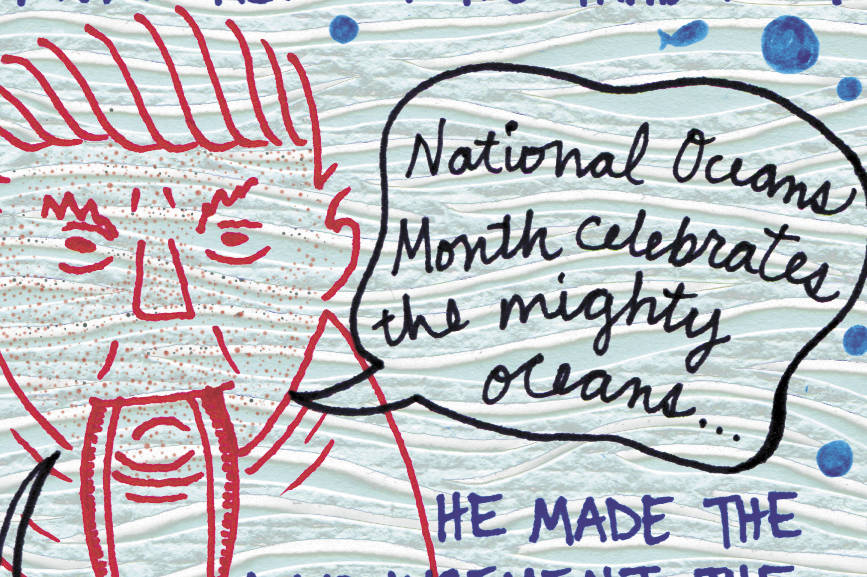 National Oceans
Month celebrates
the mighty
oceans...
HE MADE THE
THE